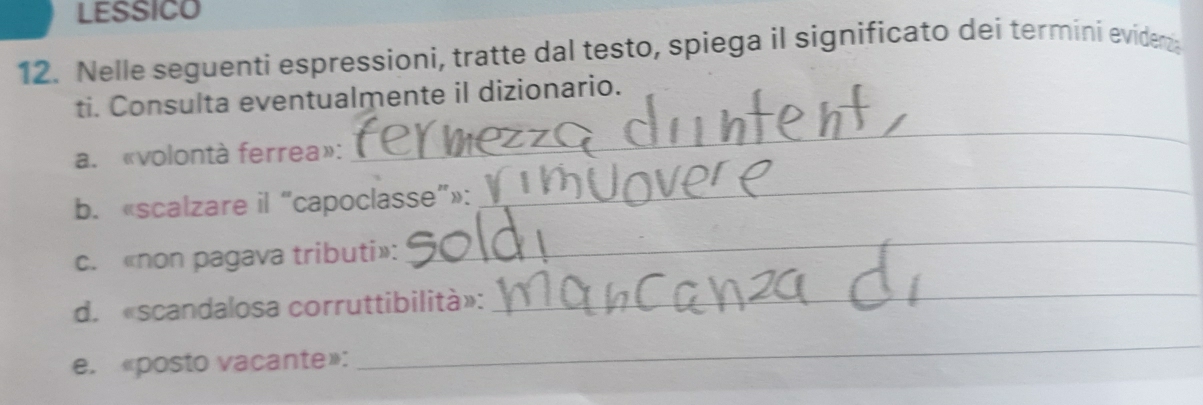 LESSICO
12. Nelle seguenti espressioni, tratte dal testo, spiega il significato dei termini evidenzia
ti. Consulta eventualmente il dizionario.
a. «volontà ferrea»: fermezza di intenti
b. «scalzare il “capoclasse”»: rimuovere
c. «non pagava tributi»: soldi
d. «scandalosa corruttibilità»: mancanza di
e. «posto vacante»: